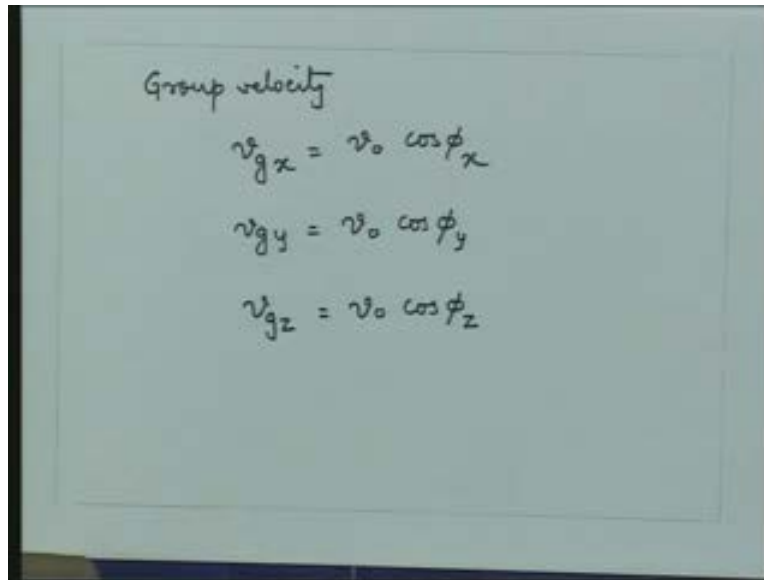 Group velocity
v_gx = v₀ cos ϕ_x
v_gy = v₀ cos ϕ_y
v_gz = v₀ cos ϕ_z